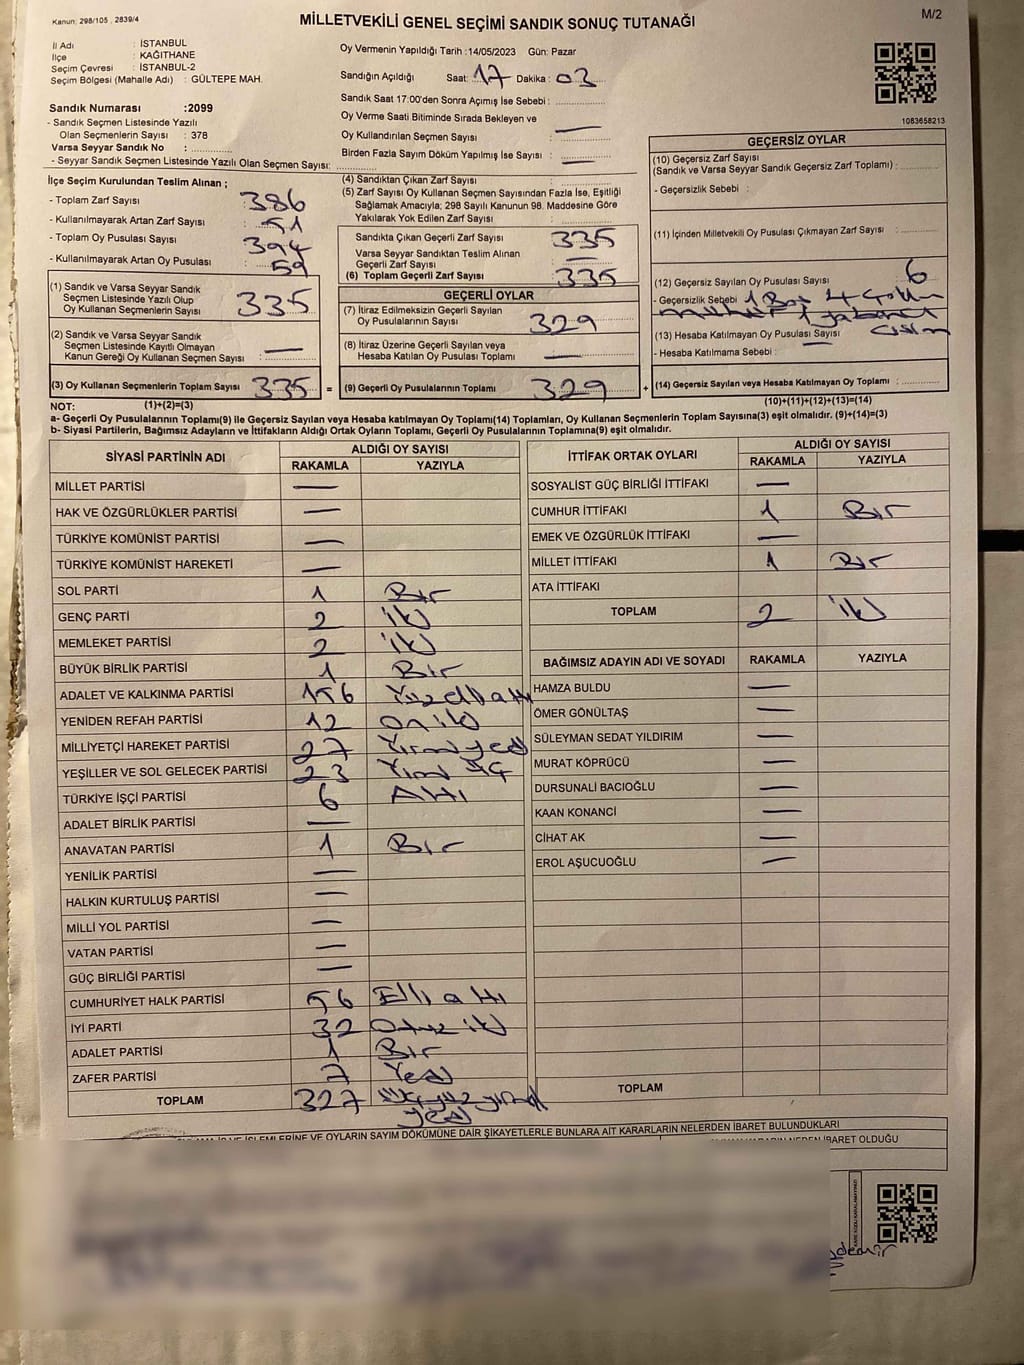 Kanun: 298/105 , 2839/4
MİLLETVEKİLİ GENEL SEÇİMİ SANDIK SONUÇ TUTANAĞI
M/2
İl Adı : İSTANBUL
İlçe : KAĞITHANE
Seçim Çevresi : İSTANBUL-2
Seçim Bölgesi (Mahalle Adı) : GÜLTEPE MAH.
Sandık Numarası :2099
- Sandık Seçmen Listesinde Yazılı
Olan Seçmenlerin Sayısı : 378
Varsa Seyyar Sandık No :
- Seyyar Sandık Seçmen Listesinde Yazılı Olan Seçmen Sayısı:
Oy Vermenin Yapıldığı Tarih :14/05/2023 Gün: Pazar
Sandığın Açıldığı Saat: 17 Dakika : 03
Sandık Saat 17:00'den Sonra Açımış İse Sebebi :
Oy Verme Saati Bitiminde Sırada Bekleyen ve
Oy Kullandırılan Seçmen Sayısı : —
Birden Fazla Sayım Döküm Yapılmış İse Sayısı : —
1083658213
İlçe Seçim Kurulundan Teslim Alınan ;
- Toplam Zarf Sayısı : 386
- Kullanılmayarak Artan Zarf Sayısı : 51
- Toplam Oy Pusulası Sayısı : 394
- Kullanılmayarak Artan Oy Pusulası : 59
(1) Sandık ve Varsa Seyyar Sandık
Seçmen Listesinde Yazılı Olup
Oy Kullanan Seçmenlerin Sayısı : 335
(2) Sandık ve Varsa Seyyar Sandık
Seçmen Listesinde Kayıtlı Olmayan
Kanun Gereği Oy Kullanan Seçmen Sayısı : —
(3) Oy Kullanan Seçmenlerin Toplam Sayısı : 335 =
(4) Sandıktan Çıkan Zarf Sayısı :
(5) Zarf Sayısı Oy Kullanan Seçmen Sayısından Fazla İse, Eşitliği
Sağlamak Amacıyla; 298 Sayılı Kanunun 98. Maddesine Göre
Yakılarak Yok Edilen Zarf Sayısı :
Sandıkta Çıkan Geçerli Zarf Sayısı : 335
Varsa Seyyar Sandıktan Teslim Alınan
Geçerli Zarf Sayısı : —
(6) Toplam Geçerli Zarf Sayısı : 335
GEÇERLİ OYLAR
(7) İtiraz Edilmeksizin Geçerli Sayılan
Oy Pusulalarının Sayısı : 329
(8) İtiraz Üzerine Geçerli Sayılan veya
Hesaba Katılan Oy Pusulası Toplamı : —
(9) Geçerli Oy Pusulalarının Toplamı : 329 +
GEÇERSİZ OYLAR
(10) Geçersiz Zarf Sayısı
(Sandık ve Varsa Seyyar Sandık Geçersiz Zarf Toplamı) :
- Geçersizlik Sebebi :
(11) İçinden Milletvekili Oy Pusulası Çıkmayan Zarf Sayısı :
(12) Geçersiz Sayılan Oy Pusulası Sayısı : 6
- Geçersizlik Sebebi : 1 Boş 4 Çoklu
mühür 1 yabancı
cisim
(13) Hesaba Katılmayan Oy Pusulası Sayısı : —
- Hesaba Katılmama Sebebi :
(14) Geçersiz Sayılan veya Hesaba Katılmayan Oy Toplamı :
NOT: (1)+(2)=(3)
(10)+(11)+(12)+(13)=(14)
a- Geçerli Oy Pusulalarının Toplamı(9) ile Geçersiz Sayılan veya Hesaba katılmayan Oy Toplamı(14) Toplamları, Oy Kullanan Seçmenlerin Toplam Sayısına(3) eşit olmalıdır. (9)+(14)=(3)
b- Siyasi Partilerin, Bağımsız Adayların ve İttifakların Aldığı Ortak Oyların Toplamı, Geçerli Oy Pusulalarının Toplamına(9) eşit olmalıdır.
SİYASİ PARTİNİN ADI ALDIĞI OY SAYISI
RAKAMLA YAZIYLA
MİLLET PARTİSİ —
HAK VE ÖZGÜRLÜKLER PARTİSİ —
TÜRKİYE KOMÜNİST PARTİSİ —
TÜRKİYE KOMÜNİST HAREKETİ —
SOL PARTİ 1 Bir
GENÇ PARTİ 2 iki
MEMLEKET PARTİSİ 2 iki
BÜYÜK BİRLİK PARTİSİ 1 Bir
ADALET VE KALKINMA PARTİSİ 156 Yüzelli altı
YENİDEN REFAH PARTİSİ 12 on iki
MİLLİYETÇİ HAREKET PARTİSİ 27 Yirmi yedi
YEŞİLLER VE SOL GELECEK PARTİSİ 23 Yirmi üç
TÜRKİYE İŞÇİ PARTİSİ 6 Altı
ADALET BİRLİK PARTİSİ —
ANAVATAN PARTİSİ 1 Bir
YENİLİK PARTİSİ —
HALKIN KURTULUŞ PARTİSİ —
MİLLİ YOL PARTİSİ —
VATAN PARTİSİ —
GÜÇ BİRLİĞİ PARTİSİ —
CUMHURİYET HALK PARTİSİ 56 Elli altı
İYİ PARTİ 32 Otuz iki
ADALET PARTİSİ 1 Bir
ZAFER PARTİSİ 7 Yedi
TOPLAM 327 üçyüz yirmi
yedi
İTTİFAK ORTAK OYLARI ALDIĞI OY SAYISI
RAKAMLA YAZIYLA
SOSYALİST GÜÇ BİRLİĞİ İTTİFAKI —
CUMHUR İTTİFAKI 1 Bir
EMEK VE ÖZGÜRLÜK İTTİFAKI —
MİLLET İTTİFAKI 1 Bir
ATA İTTİFAKI
TOPLAM 2 iki
BAĞIMSIZ ADAYIN ADI VE SOYADI RAKAMLA YAZIYLA
HAMZA BULDU —
ÖMER GÖNÜLTAŞ —
SÜLEYMAN SEDAT YILDIRIM —
MURAT KÖPRÜCÜ —
DURSUNALİ BACIOĞLU —
KAAN KONANCİ —
CİHAT AK —
EROL AŞUCUOĞLU —
TOPLAM
İŞLEMLERİNE VE OYLARIN SAYIM DÖKÜMÜNE DAİR ŞİKAYETLERLE BUNLARA AİT KARARLARIN NELERDEN İBARET BULUNDUKLARI
NEDEN İBARET OLDUĞU